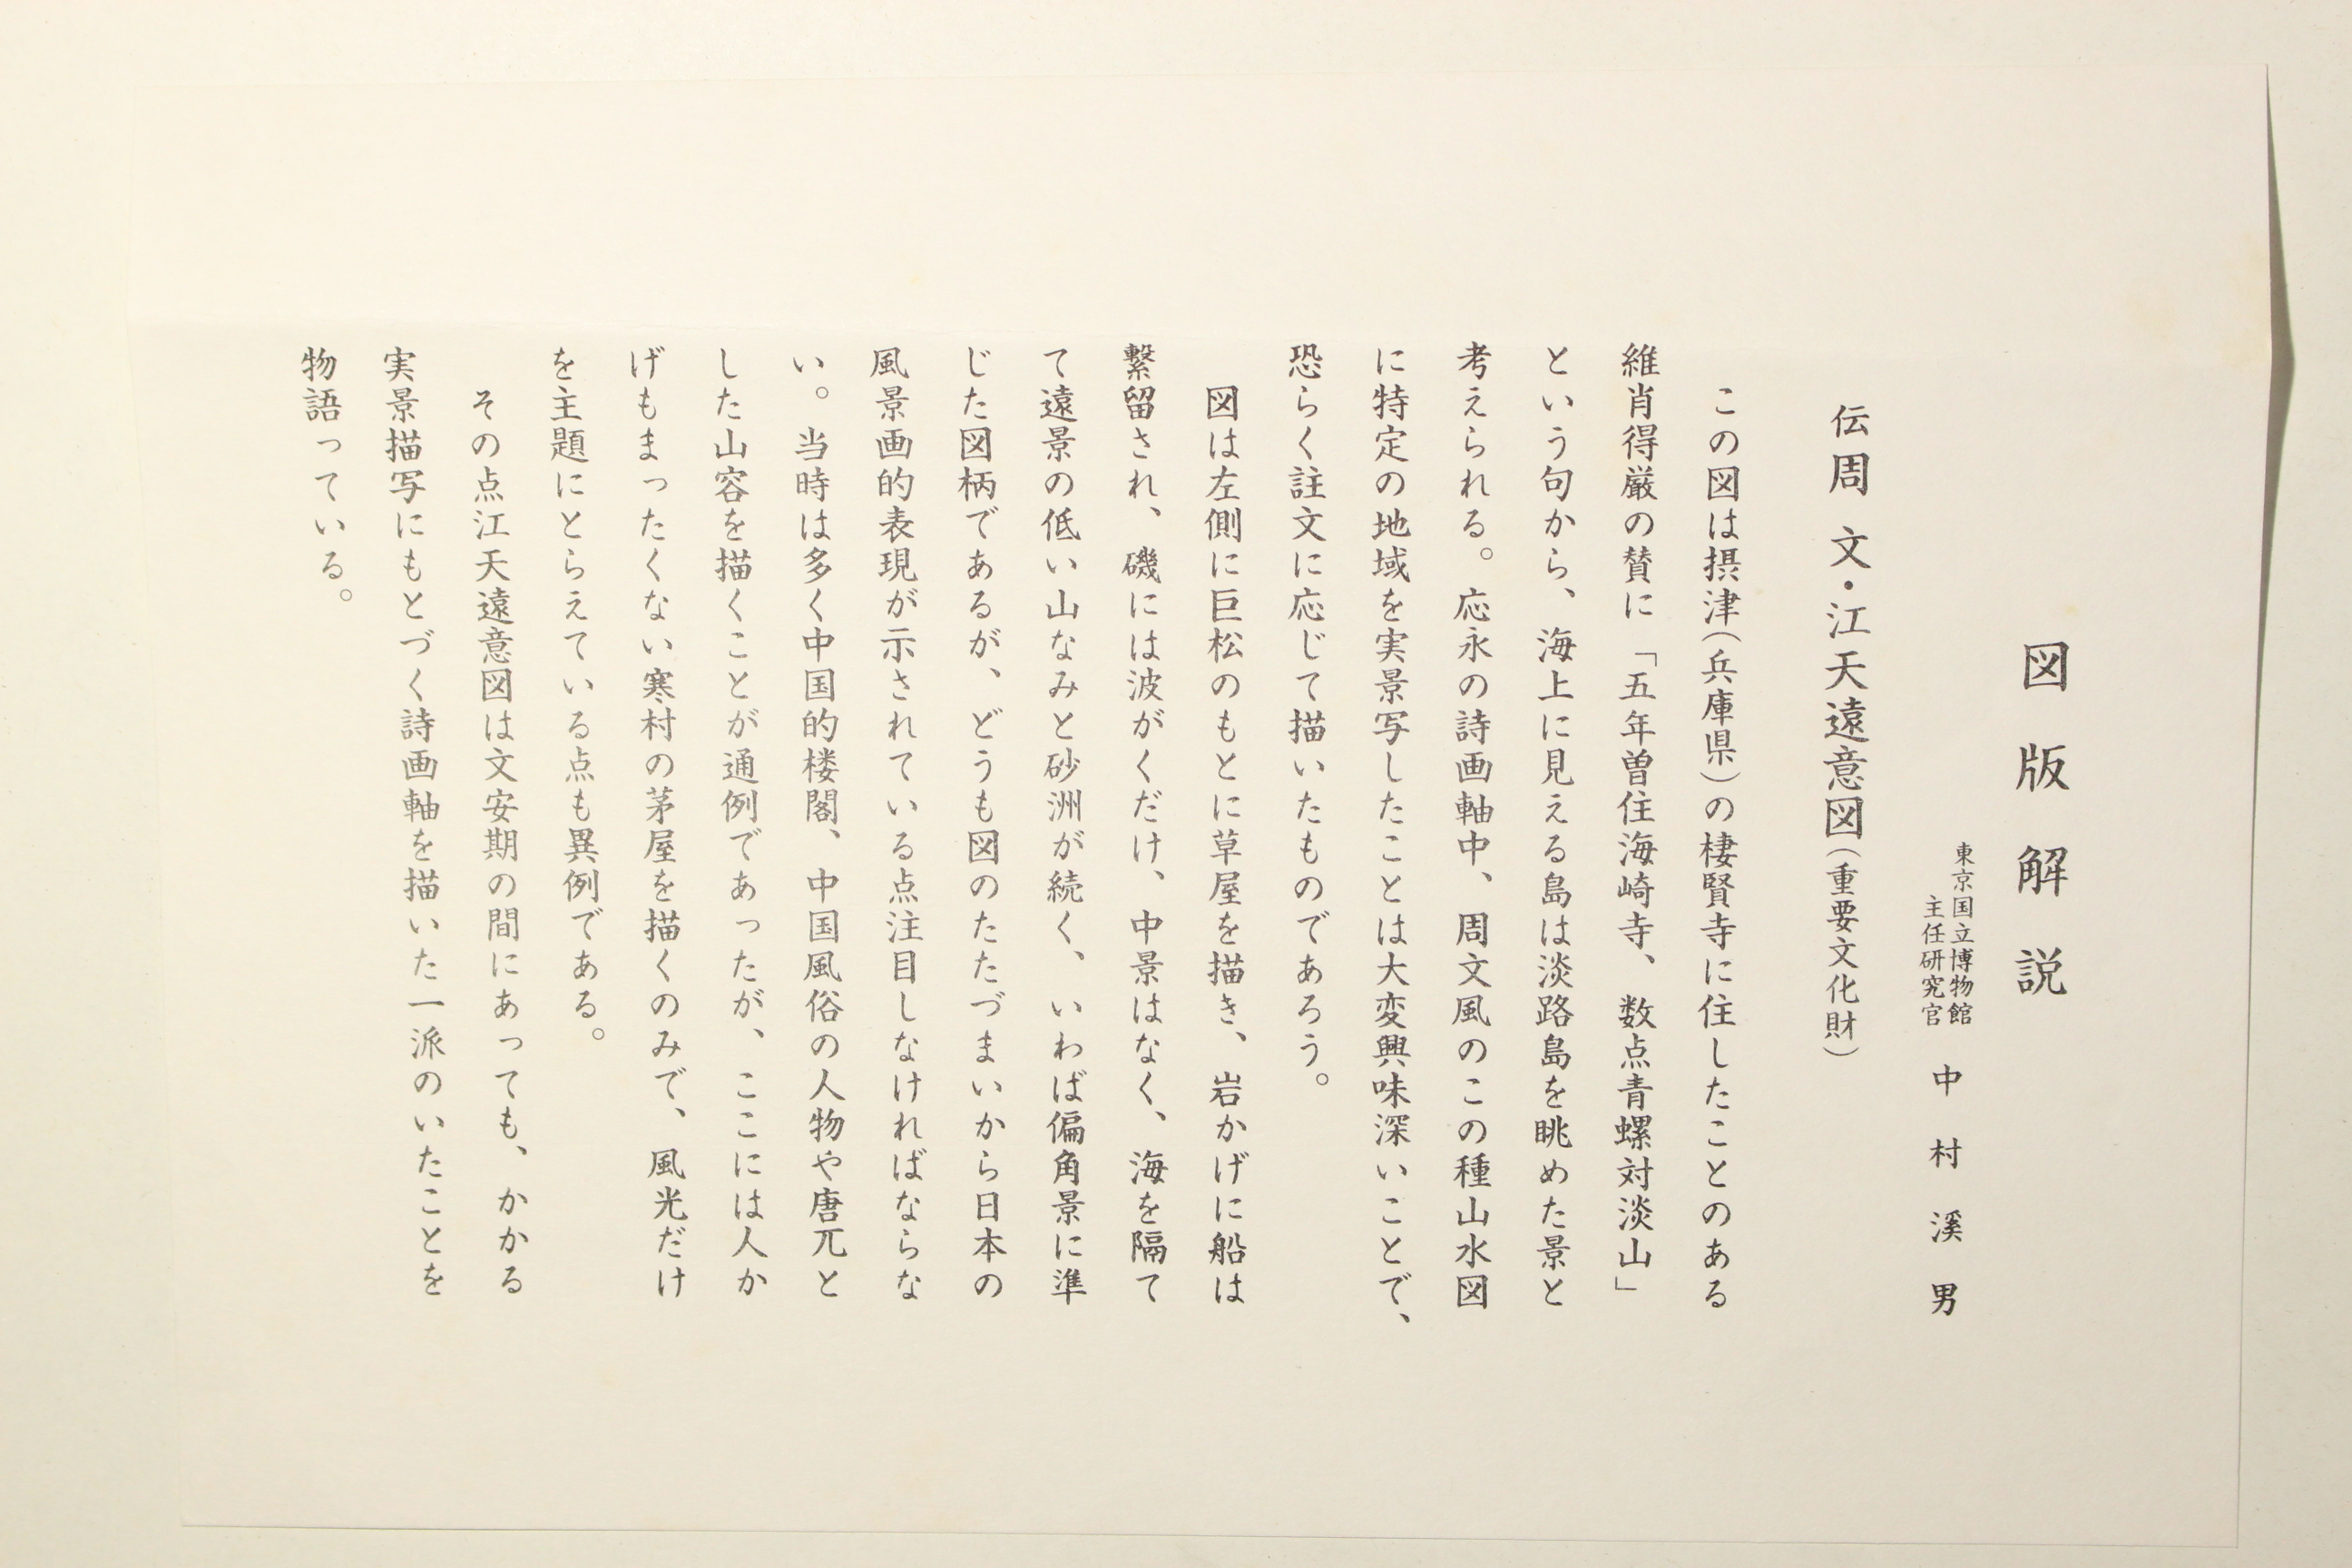 図版解説
東京国立博物館
主任研究官
中村溪男
伝周文・江天遠意図(重要文化財)
この図は摂津(兵庫県)の棲賢寺に住したことのある
維肖得厳の賛に「五年曽住海崎寺、数点青螺対淡山」
という句から、海上に見える島は淡路島を眺めた景と
考えられる。応永の詩画軸中、周文風のこの種山水図
に特定の地域を実景写したことは大変興味深いことで、
恐らく註文に応じて描いたものであろう。
図は左側に巨松のもとに草屋を描き、岩かげに船は
繋留され、磯には波がくだけ、中景はなく、海を隔て
て遠景の低い山なみと砂洲が続く、いわば偏角景に準
じた図柄であるが、どうも図のたたづまいから日本の
風景画的表現が示されている点注目しなければならな
い。当時は多く中国的楼閣、中国風俗の人物や唐兀と
した山容を描くことが通例であったが、ここには人か
げもまったくない寒村の茅屋を描くのみで、風光だけ
を主題にとらえている点も異例である。
その点江天遠意図は文安期の間にあっても、かかる
実景描写にもとづく詩画軸を描いた一派のいたことを
物語っている。